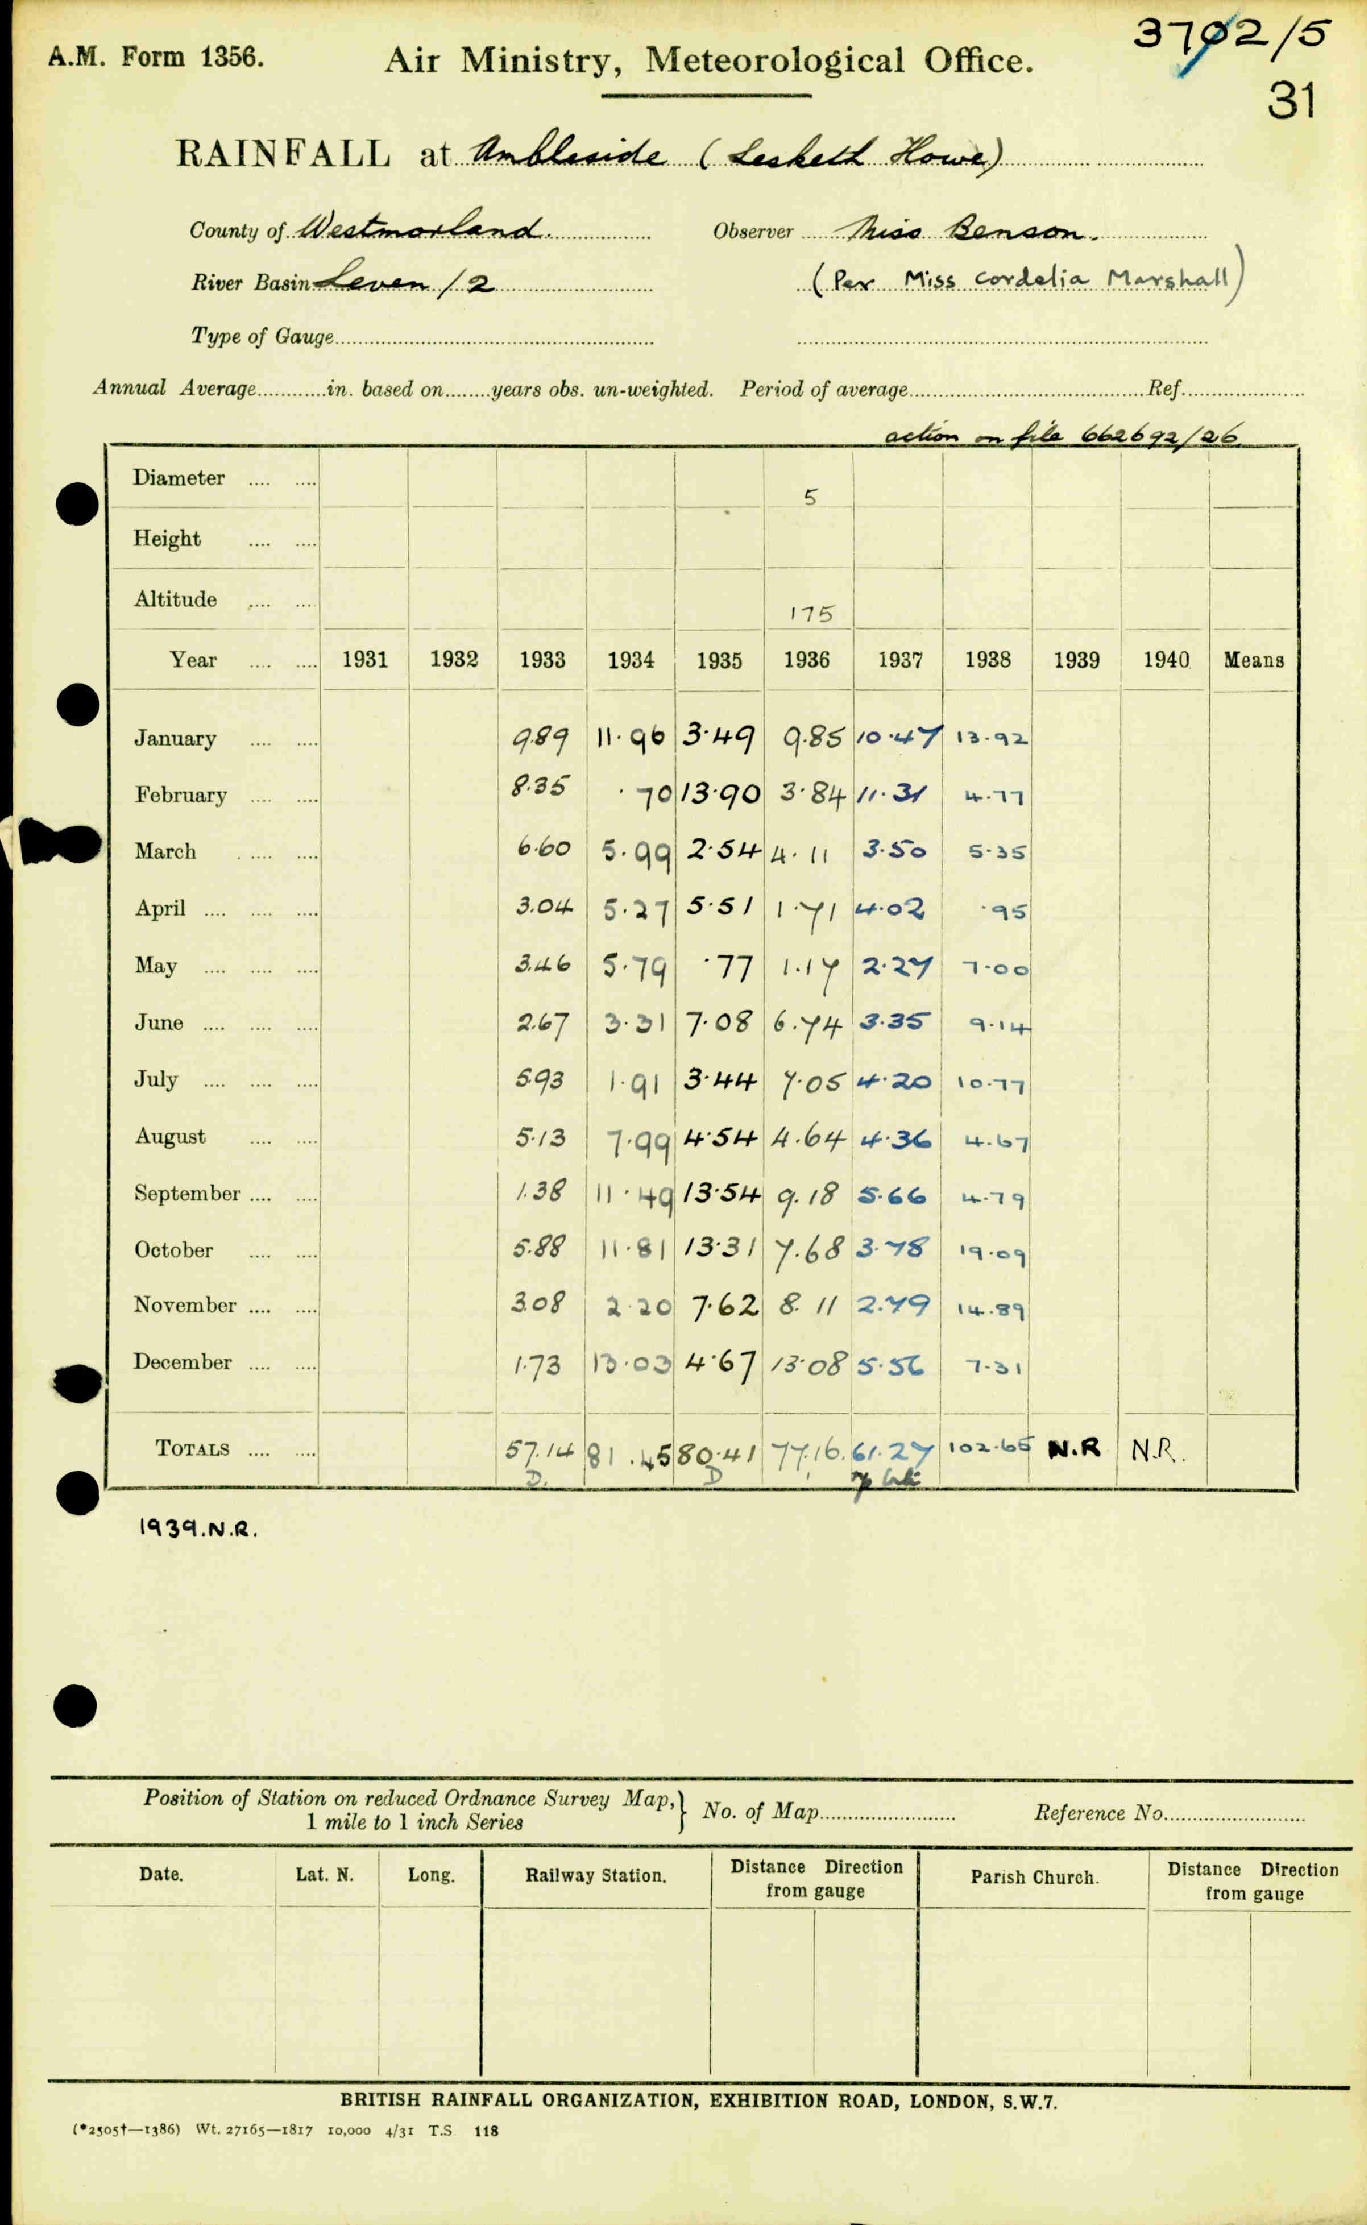 3702/5
A.M. Form 1356. Air Ministry, Meteorological Office.
31
RAINFALL at Ambleside (Lesketh Howe)
County of Westmorland. Observer Miss Benson.
River Basin Leven /2 (Per Miss Cordelia Marshall)
Type of Gauge
Annual Average in. based on years obs. un-weighted. Period of average Ref.
action on file 662692/26
Diameter 5
Height
Altitude 175
Year 1931 1932 1933 1934 1935 1936 1937 1938 1939 1940 Means
January 9.89 11.96 3.49 9.85 10.47 13.92
February 8.35 .70 13.90 3.84 11.31 4.77
March 6.60 5.99 2.54 4.11 3.50 5.35
April 3.04 5.27 5.51 1.71 4.02 .95
May 3.46 5.79 .77 1.17 2.27 7.00
June 2.67 3.31 7.08 6.74 3.35 9.14
July 5.93 1.91 3.44 7.05 4.20 10.77
August 5.13 7.99 4.54 4.64 4.36 4.67
September 1.38 11.49 13.54 9.18 5.66 4.79
October 5.88 11.81 13.31 7.68 3.78 19.09
November 3.08 2.20 7.62 8.11 2.79 14.89
December 1.73 13.03 4.67 13.08 5.56 7.31
TOTALS 57.14 81.45 80.41 77.16 61.27 102.65 N.R N.R.
D. D
1939.N.R.
Position of Station on reduced Ordnance Survey Map, } No. of Map Reference No.
1 mile to 1 inch Series
Date. Lat. N. Long. Railway Station. Distance Direction Parish Church. Distance Direction
from gauge from gauge
BRITISH RAINFALL ORGANIZATION, EXHIBITION ROAD, LONDON, S.W.7.
(*2505†—1386) Wt. 27165—1817 10,000 4/31 T.S 118